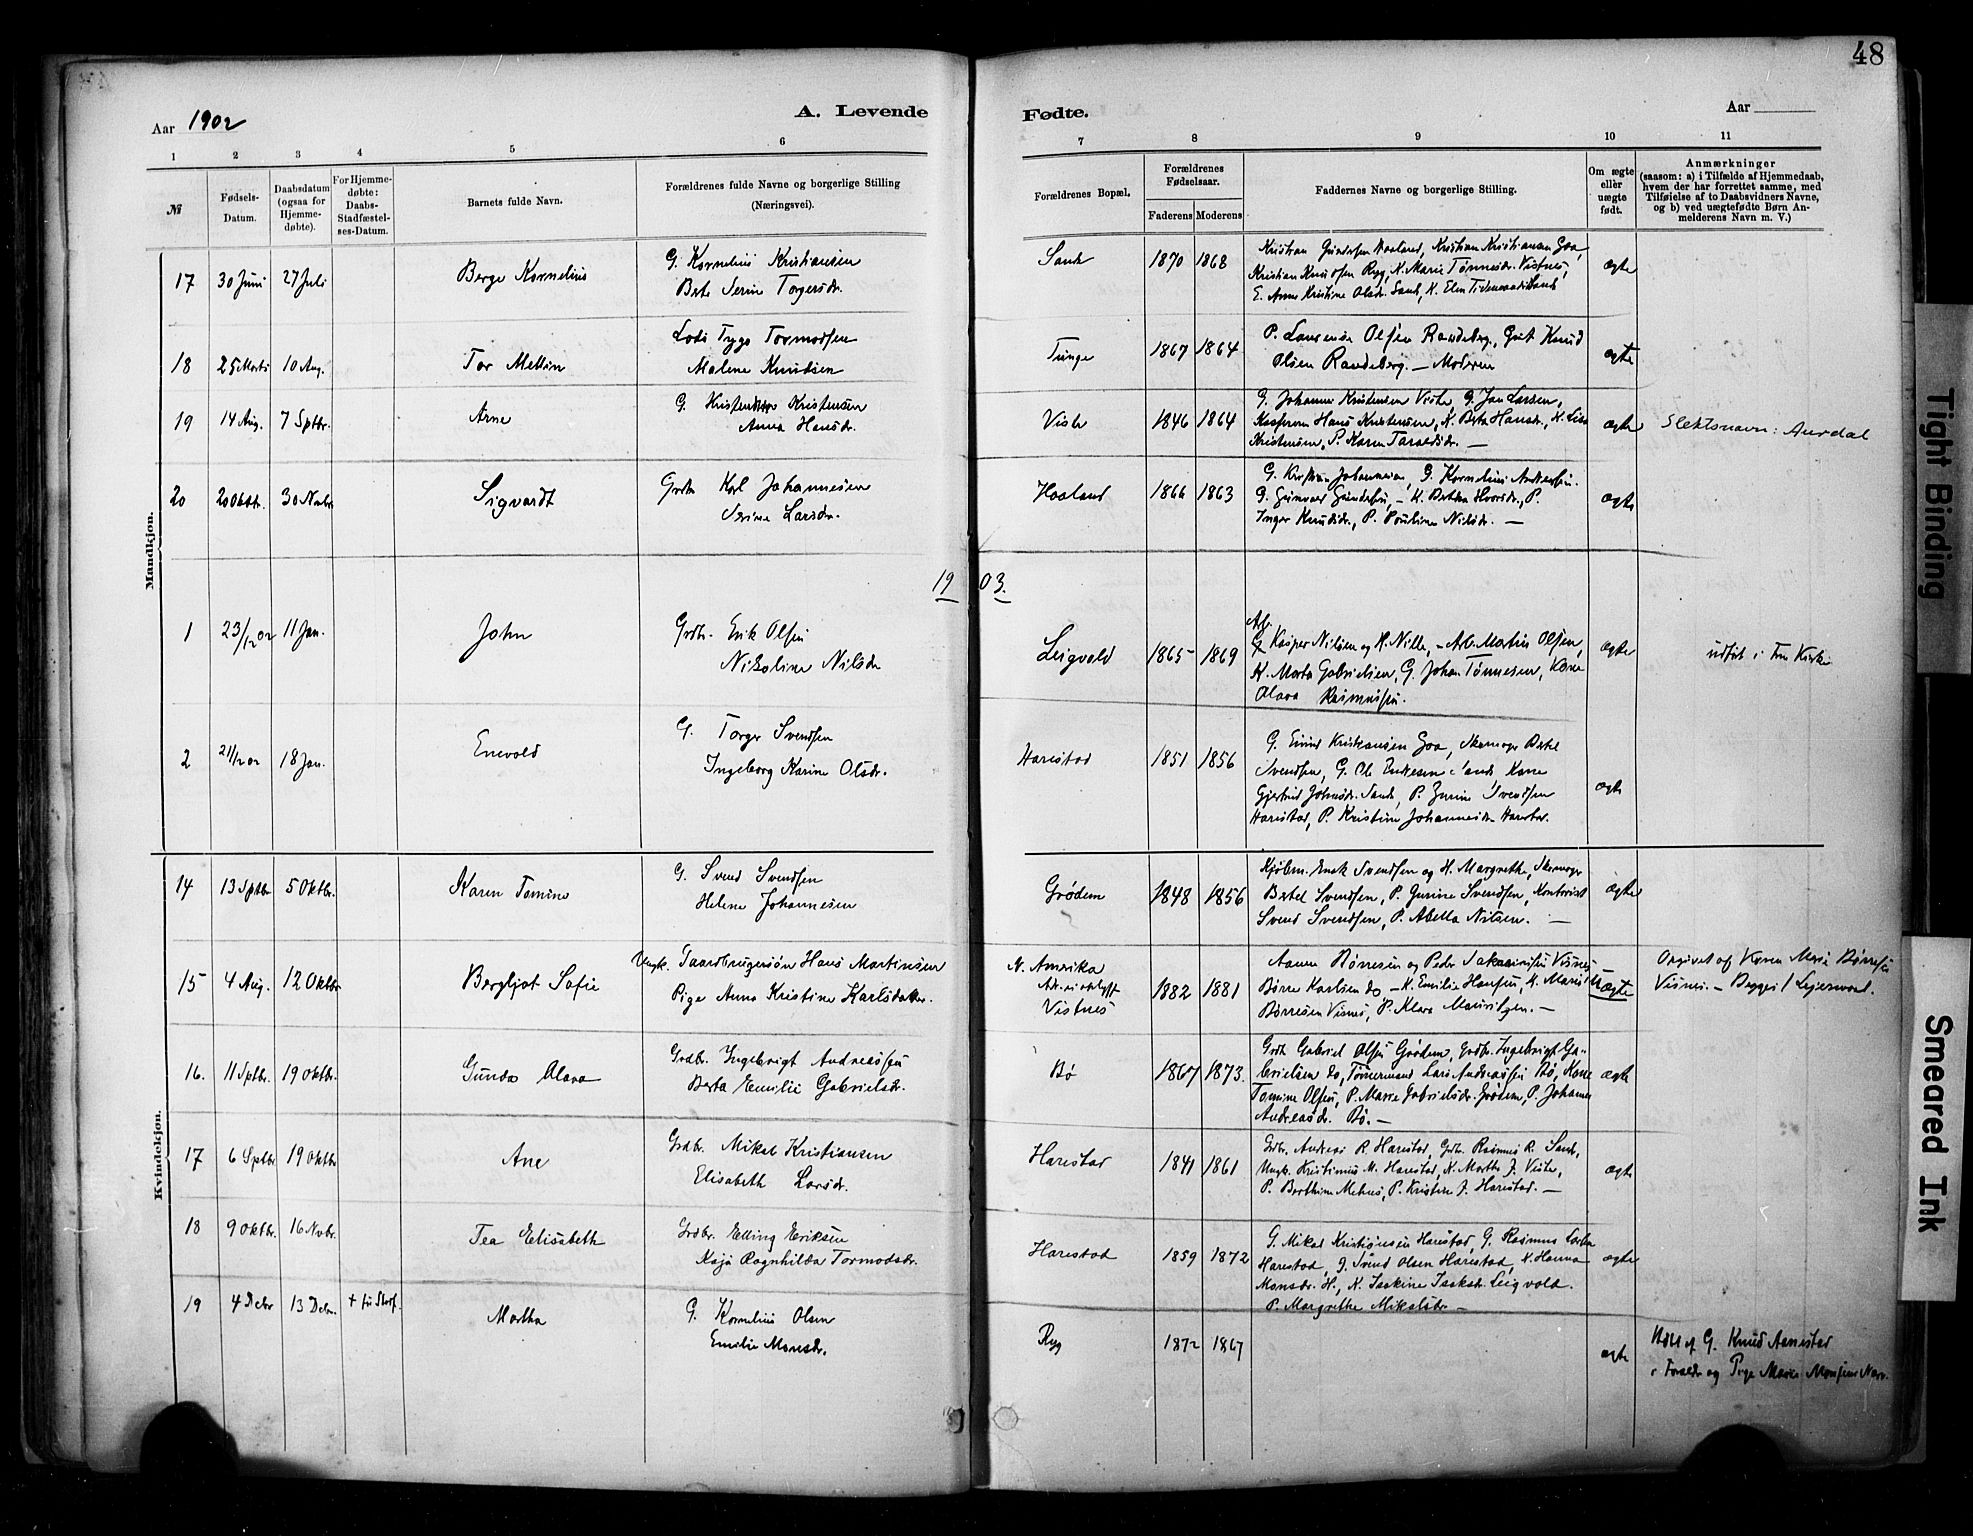 48
Aar 1902
A. Levende
Fødte.
Aar
1 2 3 4 5 6 7 8 9 10 11
№
Fødsels-
Datum.
Daabsdatum
(ogsaa for
Hjemme-
døbte).
For Hjemme-
døbte:
Daabs-
Stadfæstel-
ses-Datum.
Barnets fulde Navn.
Forældrenes fulde Navne og borgerlige Stilling
(Næringsvei).
Forældrenes Bopæl.
Forældrenes
Fødselsaar.
Faderens Moderens
Faddernes Navne og borgerlige Stilling.
Om ægte
eller
uægte
født.
Anmærkninger
(saasom: a) i Tilfælde af Hjemmedaab,
hvem der har forrettet samme, med
Tilføielse af to Daabsvidners Navne,
og b) ved uægtefødte Børn An-
melderens Navn m. V.)
Mandkjøn.
17 30 Juni 27 Juli Berge Kornelius
G. Kornelius Kristiansen
Berte Serine Torgersdr.
Sande 1870 1868
Kristian Kristiansen Goa,
Kristian Knudsen Ryg, K. Marie Tønnesdr. Vistnes,
E. Anne Kristine Olsdr. Sande, K. Elen
ægte
18 25 Marts 10 Aug. Tor
Trygo Tormodsen
Malene Knudsen
Tunge 1867 1864
P. Laurense Olsen Randeberg, Knud
Olsen Randeberg. — Moderen
ægte
19 14 Aug. 7 Sptbr. Arne
G. Kristensen
Anna Hansdr.
Viste 1846 1864
G. Johannes Kristensen Viste, G. Jan Larsen,
Hans Kristensen, K. Berta Hansdr., K. Lisa
Kristensen, P. Karen Taraldsdr. —
ægte
Slektsnavn: Aurdal
20 20 Oktbr. 30 Novbr. Sigvardt
Karl Johannesen
Serine Larsdr.
Haaland 1866 1863
G. Kristian Johannesen, G. Kornelius Andersen.
G. Gunvar Gundersen, — K. Bertha
Inger Knudsdr., P. Pouline Nilsdr. —
ægte
19 03.
1 23/12 02 11 Jan. John
Grdbr. Erik Olsen
Nikoline Nilsdr
Leigvold 1865 1869
Arb.
G. Kasper Nilsen og H. Nille, — Arb. Martin Olsen,
K. Marta Gabrielsen, G. Johan Tønnesen, Kone
Olava Rasmussen.
ægte
udført i Fru Kirke
2 21/12 02 18 Jan. Enevold
G. Torger Svendsen
Ingeborg Karine Olsdr.
Harestad 1851 1856
G. Eivind Kristiansen Goa, Skomager Bertel
Svendsen, G. Ole Sande, Kone
Gjertrud Johnsdr. Sande, P. Svendsen
Harestad, P. Kristine Johannesdr. Harestad.
ægte
Kvindekjøn.
14 13 Sptbr 5 Oktbr. Karen Tomine
G. Svend Svendsen
Helene Johannesen
Grødem 1848 1856
Svendsen og H. Margrethe, Skomager
Bertel Svendsen, P. Gurine Svendsen, Kontorist
Svend Svendsen, P. Abella Nilsen. —
ægte
15 4 Aug. 12 Oktbr Bergljot Sofie
Ungk. Gaardbrugersøn Hans Martinsen
Pige Anna Kristine Karlsdatter.
N. Amerika
Vistnes
1882 1881
Aanen Børresen og Peder Sakariasen Visnes
Børre Karlsen do — K. Emilie Hansen, K.
Børresen Visnes, P. Klara Mauritzen. —
uægte
Opgivet af Karen Marie Børresen
Visnes. — Begges 1 Leiermaal.
16. 11 Sptbr. 19 Oktbr. Gunda Olava
Grdbr. Ingebrigt Andreassen
Berta Emilie Gabrielsdr.
Bø 1867 1873.
Grdb. Gabriel Olsen Grødem, Grdbr. Ingebrigt Ga-
brielsen do, Tømermand Lars Andreassen Bø, Kone
Tomine Olsen, P. Marie Gabrielsdr. Grødem, P. Johanne
Andreasdr. Bø. —
ægte
17 6 Sptbr 19 Oktbr Ane
Grdbr. Mikal Kristiansen
Elisabeth Larsdr.
Harestad 1841 1861
Grdbr. Andreas R. Harestad, Grdb. Rasmus R. Sande,
Ungk. Kristinius M. Harestad, K. Marthe J. Viste,
P. Berthine Mehus, P. Kristine J. Harestad. —
ægte
18 9 Oktbr. 16 Nvbr. Tea Elisabeth
Grdbr. Elling Eriksen
Kaja Ragnhilda Tormodsdr.
Harestad 1859 1872
G. Mikal Kristiansen Harestad, G. Rasmus
Harestad, G. Svend Olsen Harestad, K. Hanna
Monsdr. H., K. Isakine Isaksdr. Leigvold.
P. Margrethe Mikalsdr —
ægte
19 4 Debr 13 Debr. Martha
G. Kornelius Olsen
Emilie Monsdr.
Ryg 1872 1867
ægte
af G. Knud
og Pige Marie
Tight Binding
Smeared Ink